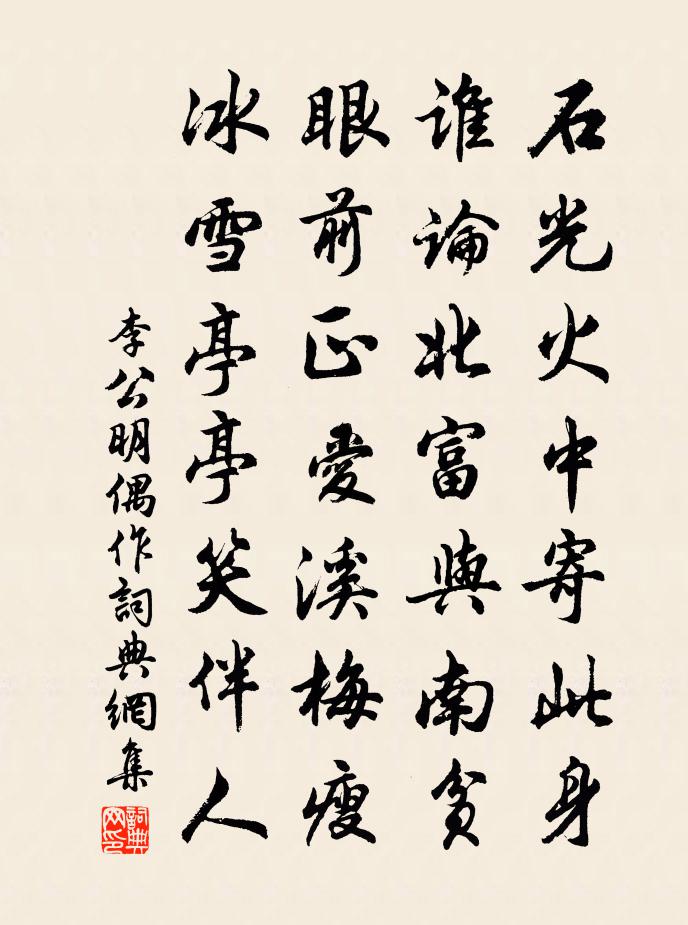 石光火中寄此身
誰論北富與南貧
眼前正愛溪梅瘦
冰雪亭亭笑伴人
李公明偶作詞典網集
詞典网印